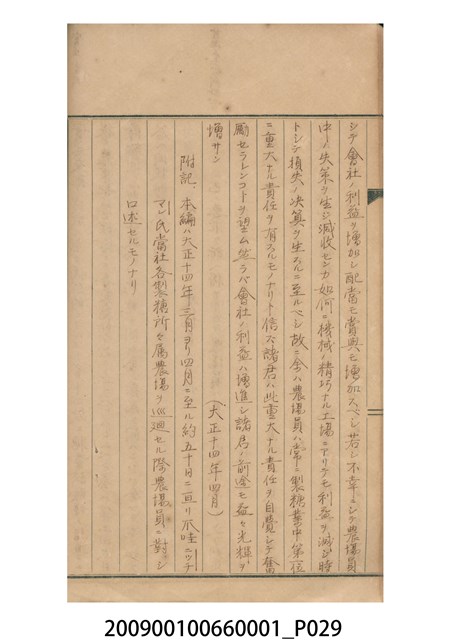 シテ會社ノ利益ヲ增加シ配當モ賞與モ增加スベシ、若シ不幸ニシテ農場員
中ノ失策ヲ生ジ減收センカ如何ニ機械ノ精巧ナル工場ニアリテモ利益ヲ減ジ時
トシテ損失ノ決算ヲ生ズルニ至ルベシ故ニ余ハ農場員ハ常ニ製糖業中第一位
ニ重大ナル責任ヲ有スルモノナリト信ズ諸君ハ此重大ナル責任ヲ自覺シテ奮
勵セラレンコトヲ望ム然ラバ會社ノ利益ハ增進シ諸君ノ前途モ益々光輝ヲ
增サン
(大正十四年四月)
附記、本編ハ大正十四年三月ヨリ四月ニ至ル約五十日ニ亘リ爪哇
氏當社各製糖所々屬農場ヲ巡廻セル際農場員ニ對シ
口述セルモノナリ
200900100660001_P029